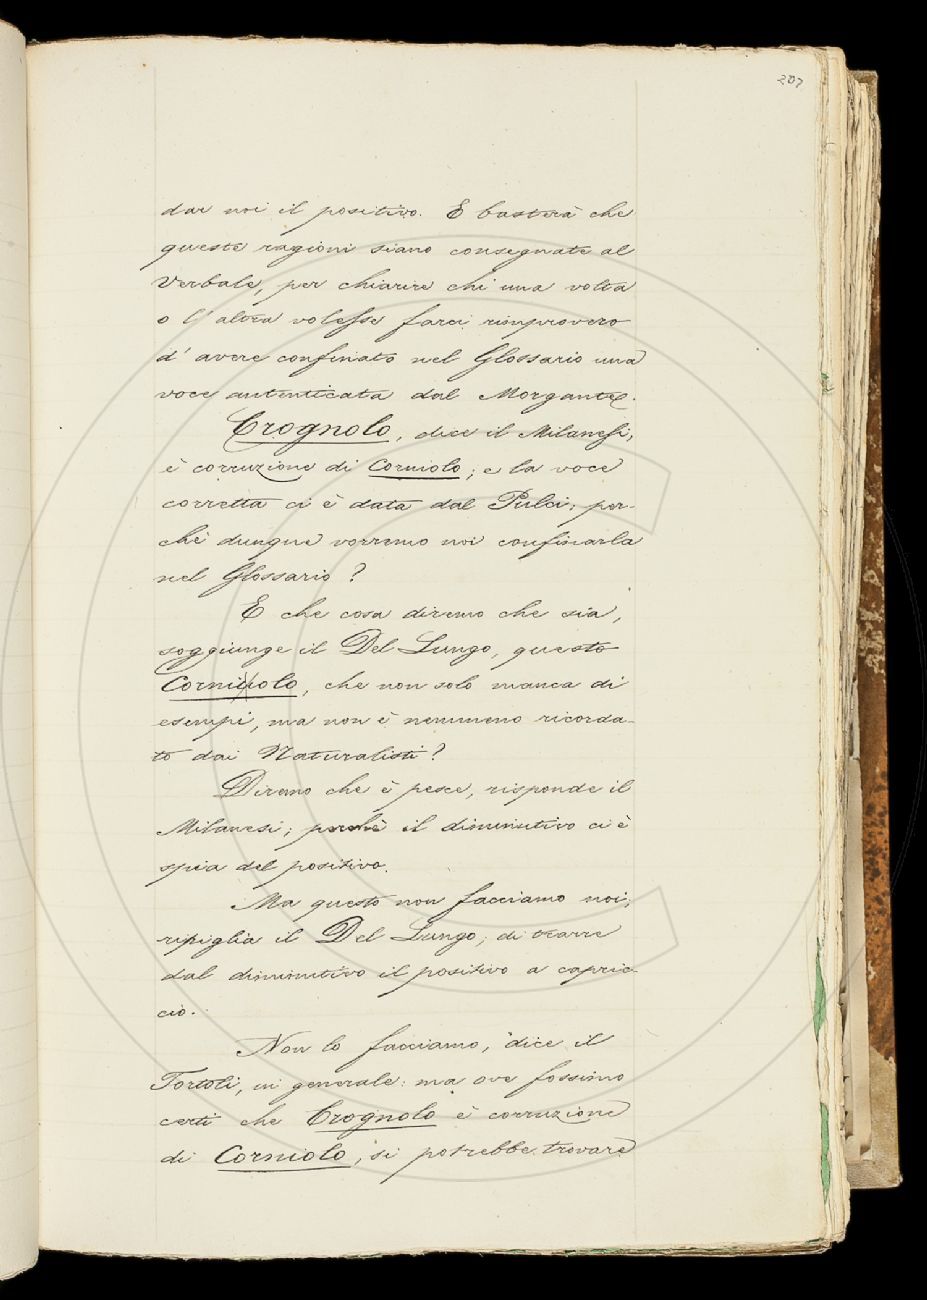 207
dar noi il positivo. E basterà che
queste ragioni siano consegnate al
Verbale, per chiarire chi una volta
o l'altra volesse farci rimprovero
d'avere confinato nel Glossario una
voce autenticata dal Morgante.
Crognolo, dice il Milanesi,
è corruzione di Corniolo; e la voce
corretta ci è data dal Pulci: per-
chè dunque vorremo noi confinarla
nel Glossario?
E che cosa diremo che sia,
soggiunge il Del Lungo, questo
Corniolo, che non solo manca di
esempi, ma non è nemmeno ricorda-
to dai Naturalisti?
Diremo che è pesce, risponde il
Milanesi; perchè il diminutivo ci è
spia del positivo.
Ma questo non facciamo noi,
ripiglia il Del Lungo, di trarre
dal diminutivo il positivo a capric-
cio.
Non lo facciamo, dice il
Tortoli, in generale: ma ove fossimo
certi che Crognolo è corruzione
di Corniolo, si potrebbe trovare